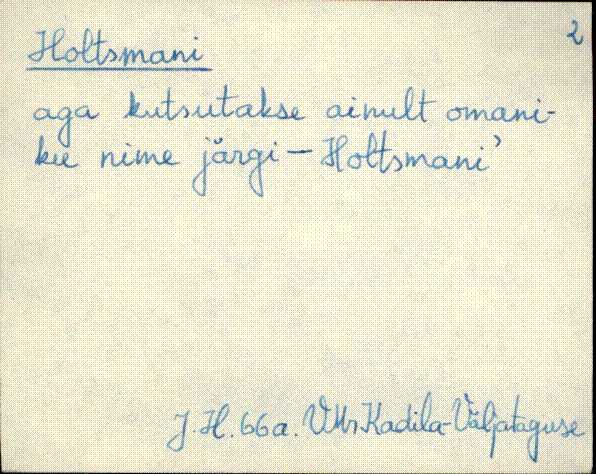 2
Holtsmani
aga kutsutakse ainult omani-
ku nime järgi – Holtsmani’
J. H. 66a. VMr Kadila-Väljataguse